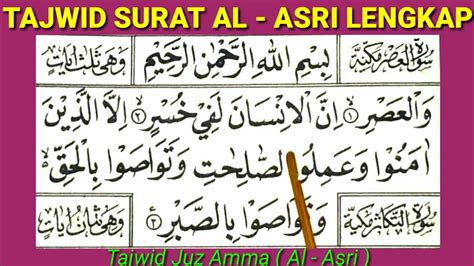 TAJWID SURAT AL - ASRI LENGKAP
سورة العصر مكية
بِسْمِ اللهِ الرَّحْمٰنِ الرَّحِيْمِ
وهي ثلث اٰيات
وَالْعَصْرِ ١ اِنَّ الْاِنْسَانَ لَفِيْ خُسْرٍ ٢ اِلَّا الَّذِيْنَ
اٰمَنُوْا وَعَمِلُوا الصّٰلِحٰتِ وَتَوَاصَوْا بِالْحَقِّ
سورة التكاثر مكية
وَتَوَاصَوْا بِالصَّبْرِ ٣
وهي ثمان اٰيات
Tajwid Juz Amma ( Al - Asri )